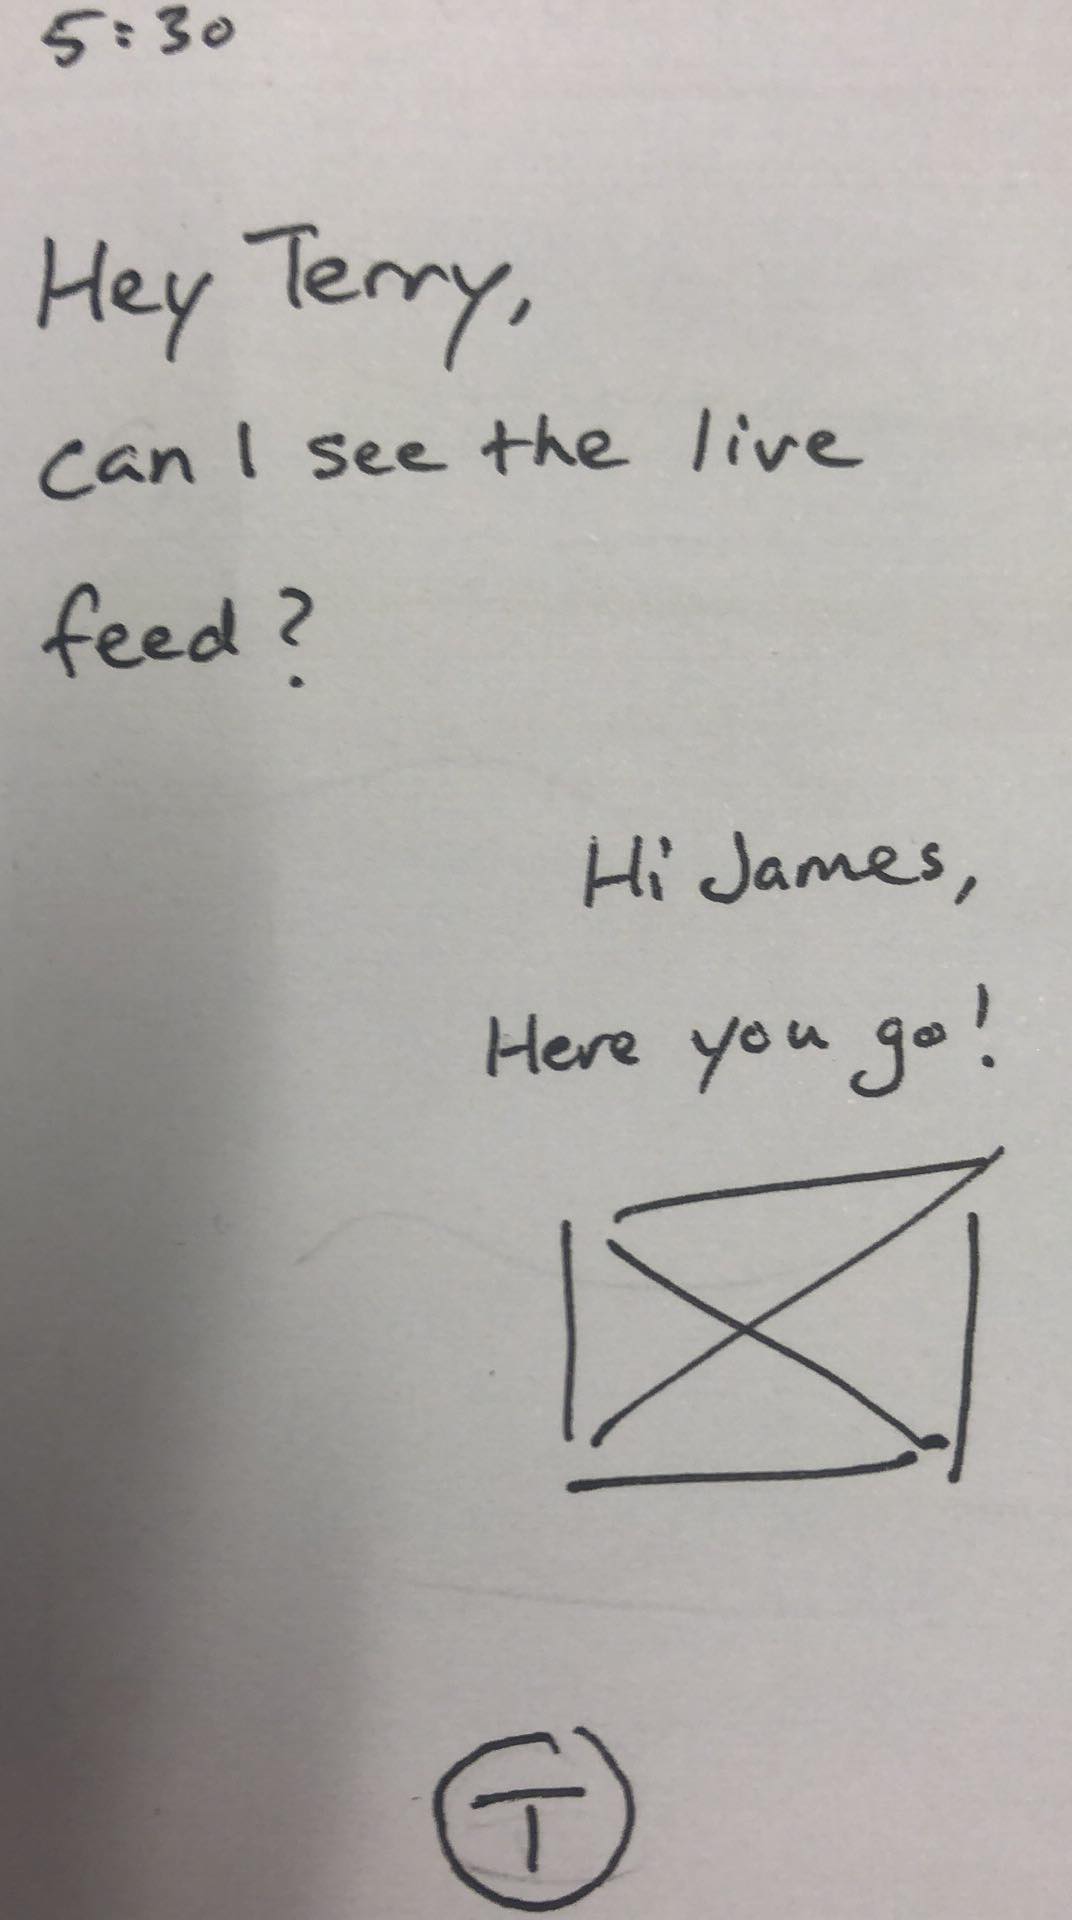 5:30
Hey Terry,
can I see the live
feed?
Hi James,
Here you go!
T